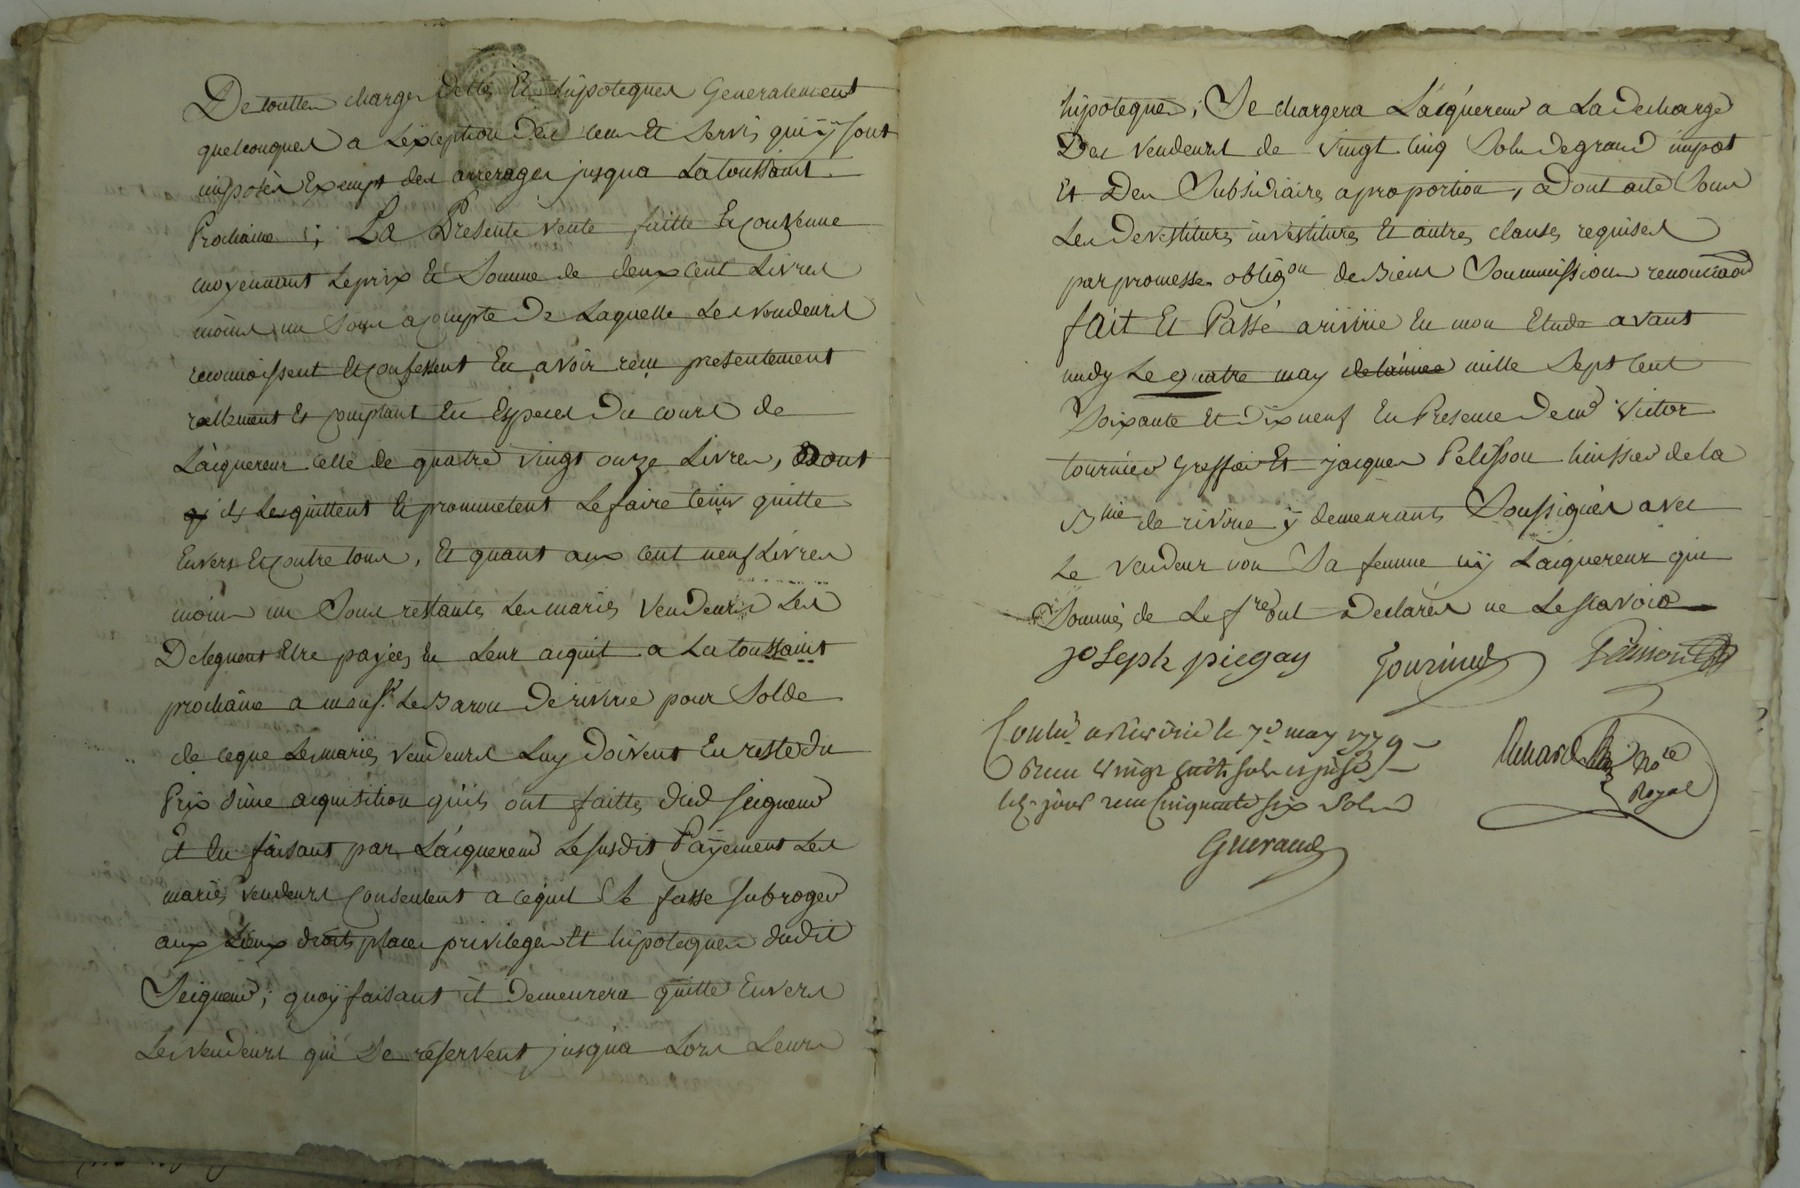 De toutter charger dettes Et hipoteques Generalement
quelconques a Lexception des cens Et servis qui y sont
imposés Exempt des arrerages jusqua La toussaint
Prochaine ; La Presente vente faitte Et convenue
moyennant Le prix Et Somme de deux cent Livres
moins un Sous a compte De Laquelle Les vendeurs
reconnoissent Et confessent En avoir reçu presentement
réellement Et comptant En Especes Du cours de
Laiquereur celle de quatre vingt onze Livres, Dont
ils Le quittent Et prommetent Le faire tenir quitte
Envers Et contre tous, Et quant aux cent neuf Livres
moins un Sous restantes Les mariés vendeurs Les
Deleguent Etre payées En Leur acquit a La toussaint
prochaine a mons.r Le Baron De rivirie pour Solde
de ceque Les mariés vendeurs Luy doivent En reste du
Prix d'une acquisition qu'ils ont faitte dud Seigneur
Et En faisant par L'aiquereur Le susdit Payement Les
mariés vendeurs consentent a cequil Se fasse subroger
aux Lieux droits places privileges Et hipoteques dudit
Seigneur ; quoy faisant il Demeurera quitte Envers
Les vendeurs qui Se réservent jusqua Lors Leurs
hipoteques ; Se chargera L'aiquereur a La decharge
Des vendeurs de vingt cinq Sols de grand impot
Et Des Subsidiaires a proportion, Dont acte Sous
Les Devestitures investitures Et autres clauses requises
par promesse oblig.on de Biens Soummissions renonciaons
fait Et Passé a rivirie En mon Etude avant
midy Le quatre may de lannée mille Sept cent
Soixante Et Dix neuf En Presence De m.r Victor
tournier Greffier Et jacques Pelisson huissier de la
B.nie de rivirie y demeurants Soussignés avec
Le vendeur non Sa femme ny L'aiquereur qui
Sommés de Le f.re ont Declarés ne Le scavoir
joseph piegay Tournier Pelisson
Contu a Riverie le 7.e may 1779
Recu vingt huit sols
led. jour recu Cinquante six Sols
Guerand
No.re
Royal